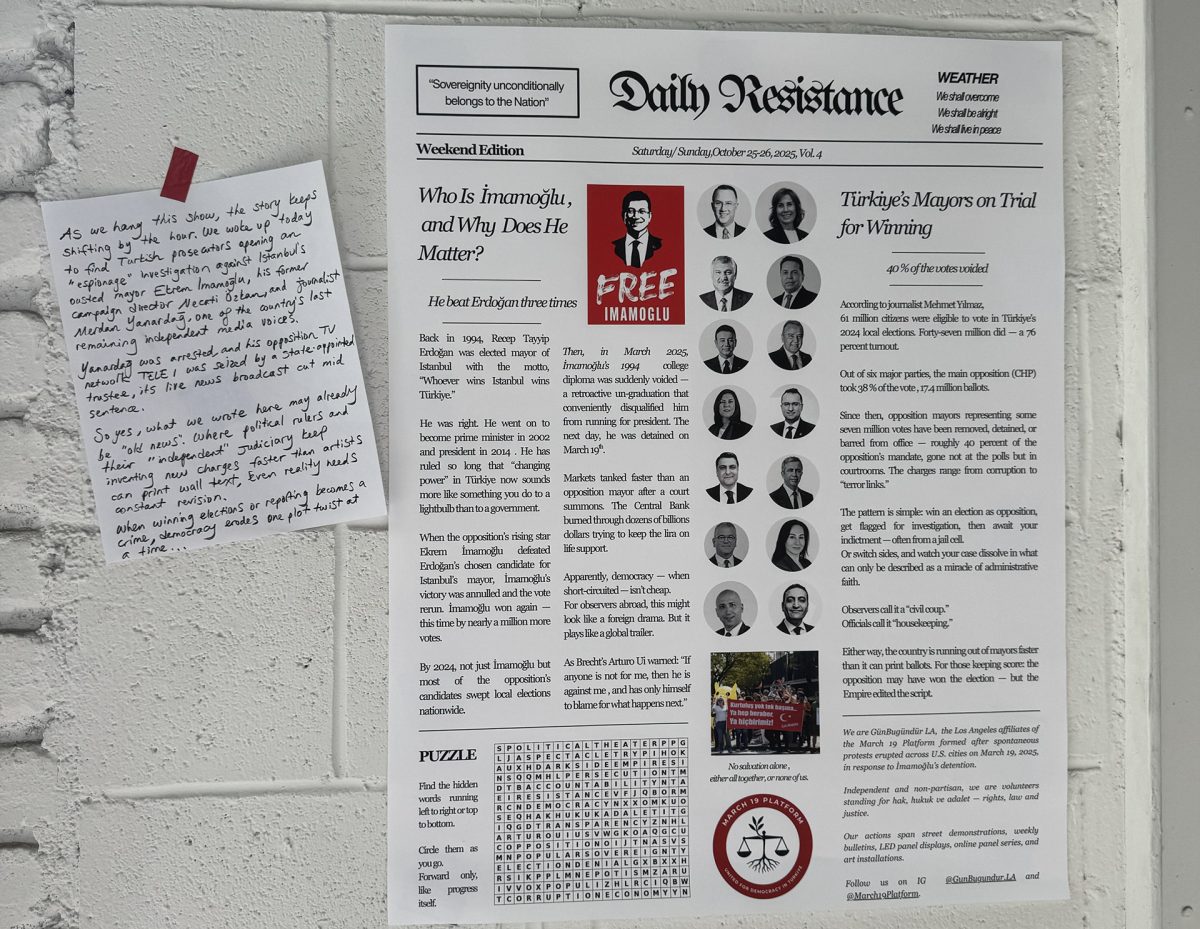 As we hang this show, the story keeps
shifting by the hour. We woke up today
to find Turkish prosecutors opening an
"espionage" investigation against Istanbul's
ousted mayor Ekrem Imamoğlu, his former
campaign director Necati Özkan, and journalist
Merdan Yanardağ, one of the country's last
remaining independent media voices.
Yanardağ was arrested, and his opposition TV
network TELE 1 was seized by a state-appointed
trustee, its live news broadcast cut mid
sentence.
So yes, what we wrote here may already
be "old news". Where political rulers and
their "independent" judiciary keep
inventing new charges faster than artists
can print wall text, even reality needs
constant revision.
When winning elections or reporting becomes a
crime, democracy erodes one plot twist at
a time...
"Sovereignity unconditionally
belongs to the Nation"
Daily Resistance
WEATHER
We shall overcome
We shall be alright
We shall live in peace
Weekend Edition
Saturday/ Sunday,October 25-26, 2025, Vol. 4
Who Is İmamoğlu,
and Why Does He
Matter?
He beat Erdoğan three times
Back in 1994, Recep Tayyip
Erdoğan was elected mayor of
Istanbul with the motto,
"Whoever wins Istanbul wins
Türkiye."
He was right. He went on to
become prime minister in 2002
and president in 2014 . He has
ruled so long that "changing
power" in Türkiye now sounds
more like something you do to a
lightbulb than to a government.
When the opposition's rising star
Ekrem İmamoğlu defeated
Erdoğan's chosen candidate for
Istanbul's mayor, İmamoğlu's
victory was annulled and the vote
rerun. İmamoğlu won again —
this time by nearly a million more
votes.
By 2024, not just İmamoğlu but
most of the opposition's
candidates swept local elections
nationwide.
FREE
IMAMOGLU
Then, in March 2025,
İmamoğlu's 1994 college
diploma was suddenly voided —
a retroactive un-graduation that
conveniently disqualified him
from running for president. The
next day, he was detained on
March 19th.
Markets tanked faster than an
opposition mayor after a court
summons. The Central Bank
burned through dozens of billions
dollars trying to keep the lira on
life support.
Apparently, democracy — when
short-circuited — isn't cheap.
For observers abroad, this might
look like a foreign drama. But it
plays like a global trailer.
As Brecht's Arturo Ui warned: "If
anyone is not for me, then he is
against me , and has only himself
to blame for what happens next."
Kurtuluş yok tek başına...
Ya hep beraber,
Ya hiçbirimiz!
No salvation alone ,
either all together, or none of us.
MARCH 19 PLATFORM
UNITED FOR DEMOCRACY IN TÜRKİYE
Türkiye's Mayors on Trial
for Winning
40 % of the votes voided
According to journalist Mehmet Yilmaz,
61 million citizens were eligible to vote in Türkiye's
2024 local elections. Forty-seven million did — a 76
percent turnout.
Out of six major parties, the main opposition (CHP)
took 38 % of the vote , 17.4 million ballots.
Since then, opposition mayors representing some
seven million votes have been removed, detained, or
barred from office — roughly 40 percent of the
opposition's mandate, gone not at the polls but in
courtrooms. The charges range from corruption to
"terror links."
The pattern is simple: win an election as opposition,
get flagged for investigation, then await your
indictment — often from a jail cell.
Or switch sides, and watch your case dissolve in what
can only be described as a miracle of administrative
faith.
Observers call it a "civil coup."
Officials call it "housekeeping."
Either way, the country is running out of mayors faster
than it can print ballots. For those keeping score: the
opposition may have won the election — but the
Empire edited the script.
We are GünBugündür LA, the Los Angeles affiliates of
the March 19 Platform formed after spontaneous
protests erupted across U.S. cities on March 19, 2025,
in response to İmamoğlu's detention.
Independent and non-partisan, we are volunteers
standing for hak, hukuk ve adalet — rights, law and
justice.
Our actions span street demonstrations, weekly
bulletins, LED panel displays, online panel series, and
art installations.
Follow us on IG @GunBugundur.LA and
@March19Platform.
PUZZLE
Find the hidden
words running
left to right or top
to bottom.
Circle them as
you go.
Forward only,
like progress
itself.
SPOLITICALTHEATERPPG
LJASPECTACLETRYPIHOK
AUXHDARKSIDEEMPIRESI
NSQQMHLPERSECUTIONTM
DTBACCOUNTABILITYNTA
EIRESISTANCEVFJQBORM
RCNDEMOCRACYNXXOMKUO
SEQHAKHUKUKADALETITG
IQGDTRANSPARENCYZNHL
ARTUROUIUSVWGKOAQGCU
COPPOSITIONOIJTNASVS
MNPOPULARSOVEREIGNTY
ELECTIONDENIALGXBXXH
RSIKPPLMNEPOTISMZARU
IVVOXPOPULIZHLRCIQBW
TCORRUPTIONECONOMYYN